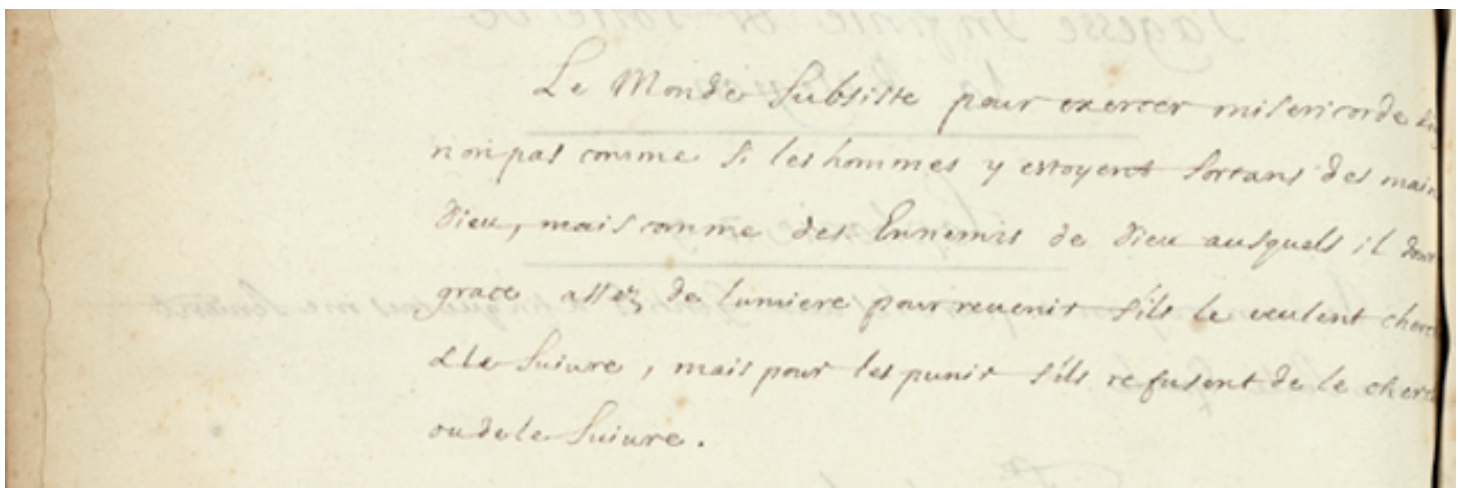 Le Monde Subsiste pour exercer misericorde
non pas comme Si les hommes y estoyent Sortans des main
Dieu, mais comme des Ennemis de Dieu ausquels il donn
grace assez de lumiere pour reuenir S'ils le veulent cherc
& le Suiure, mais pour les punir S'ils refusent de le cherc
ou de le Suiure.